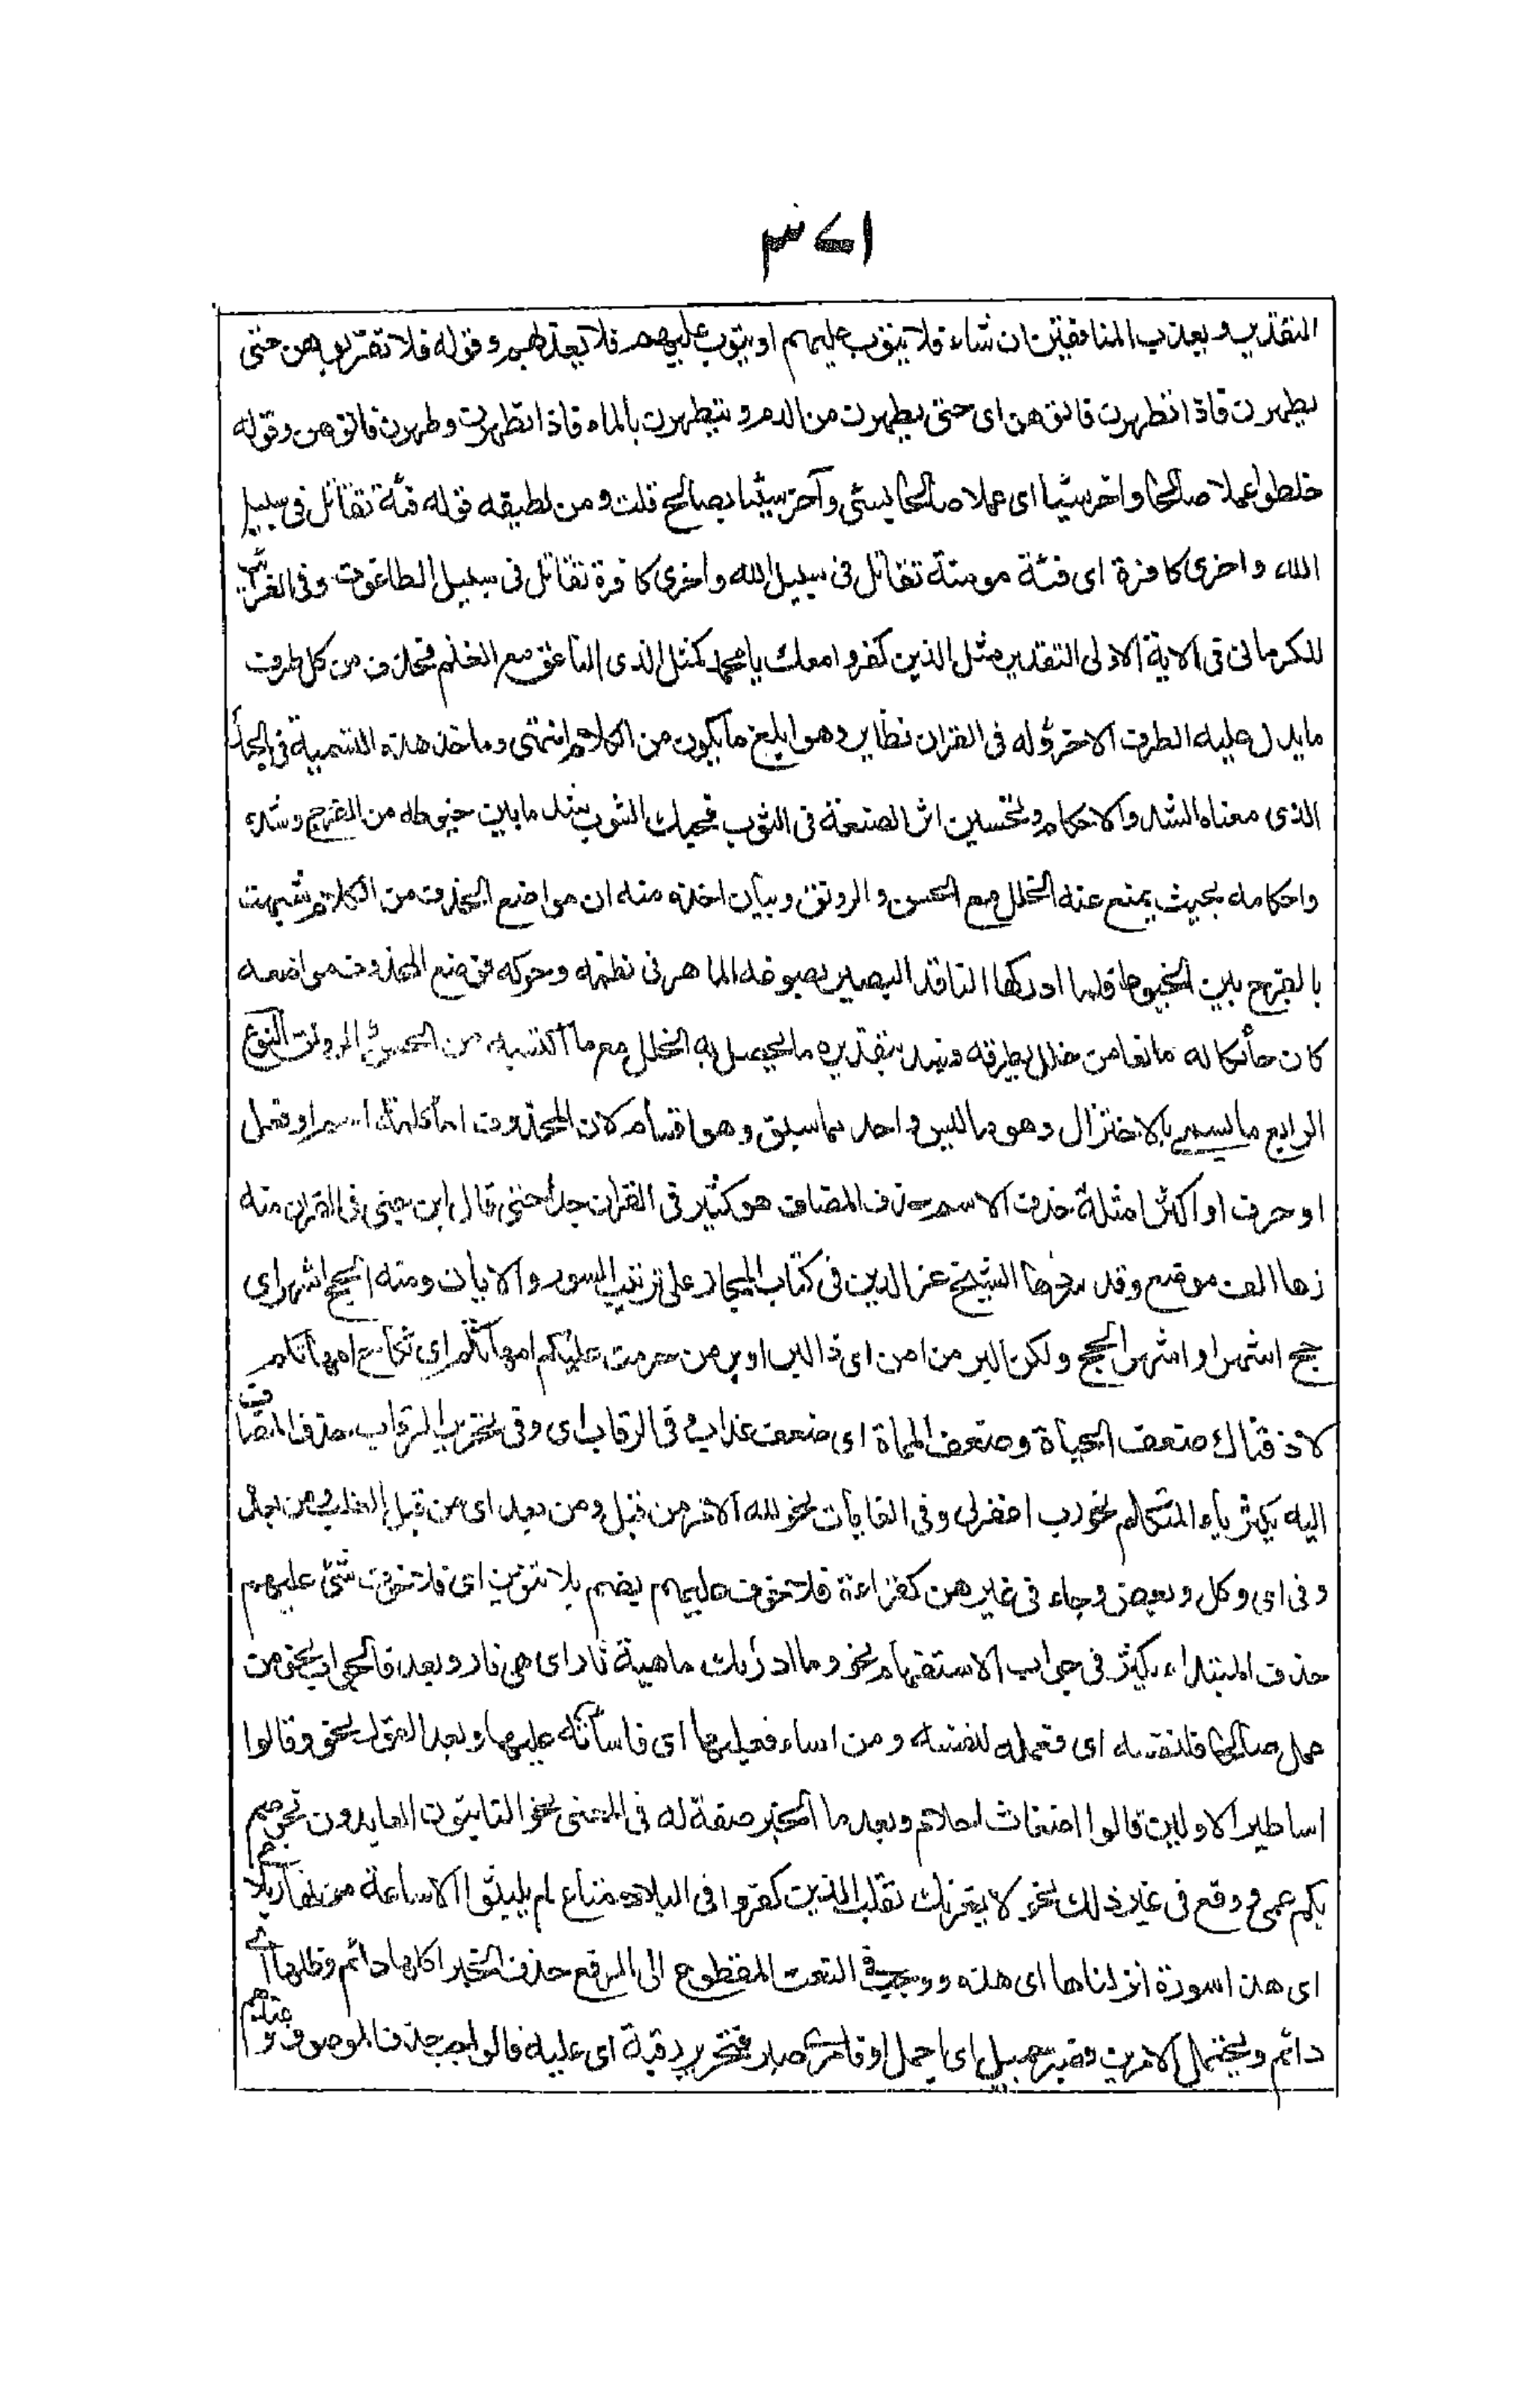 ٣٧١
التقدير ويعذب المنافقين ان شاء فلا يتوب عليهم او يتوب عليهم فلا يعذبهم وقوله فلا تقربوهن حتى
يطهرن فاذا تطهرن فاتوهن اى حتى يطهرن من الدم ويتطهرن بالماء فاذا تطهرن وطهرن فاتوهن وقوله
خلطوا عملا صالحا واخر سيئا اى عملا صالحا بسيئ وآخر سيئا بصالح قلت ومن لطيفه قوله فئة تقاتل فى سبيل
الله واخرى كافرة اى فئة مومنة تقاتل فى سبيل الله واخرى كافرة تقاتل فى سبيل الطاغوت وفى الغرائب
للكرمانى فى الاية الاولى التقدير مثل الذين كفروا معك يا محمد كمثل الذى الناعق مع الغنم فحذف من كل طرف
ما يدل عليه الطرف الاخر وله فى القران نظاير وهو ابلغ ما يكون من الكلام انتهى وماخذ هذه التسمية فى الحبك
الذى معناه الشد والاحكام وتحسين اثر الصنعة فى الثوب فحبك الثوب شد ما بين خيوطه من الفرج وشده
واحكامه بحيث يمنع عنه الخلل مع الحسن والرونق وبيان اخذه منه ان مواضع الحذف من الكلام شبهت
بالفرج بين الخيوط فلما ادركها الناقد البصير بصوغه الماهر فى نظمه وحوكه فوضع المحذوف مواضعه
كان حائكا له مانعا من خلل يطرقه فسد بتقديره ما يحصل به الخلل مع ما اكتسبه من الحسن والرونق النوع
الرابع ما يسمى بالاختزال وهو ما ليس واحد مما سبق وهو اقسام لان المحذوف اما كلمة اسم او فعل
او حرف او اكثر امثلة حذف الاسم حذف المضاف هو كثير فى القران جدا حتى قال ابن جنى فى القران منه
زها الف موضع وقد سردها الشيخ عز الدين فى كتاب المجاز على ترتيب السور والايات ومنه الحج اشهر اى
حج اشهر او اشهر الحج ولكن البر من امن اى ذا البر او بر من حرمت عليكم امهاتكم اى نكاح امهاتكم
لاذقناك ضعف الحياة وضعف المماة اى ضعف عذاب وفى الرقاب اى وفى تحرير الرقاب حذف المضاف
اليه يكثر ياء المتكلم نحو رب اغفرلى وفى الغايات نحو لله الامر من قبل ومن بعد اى من قبل الغلب ومن بعده
وفى اى وكل وبعض وجاء فى غيرهن كقراءة فلا خوف عليهم بضم بلا تنوين اى فلا خوف شئ عليهم
حذف المبتداء يكثر فى جواب الاستفهام نحو وما ادرىك ماهية نار اى هى نار وبعد فاء الجواب نحو من
عمل صالحا فلنفسه اى فعمله لنفسه ومن اساء فعليها اى فاسائته عليها وبعد القول نحو وقالوا
اساطير الاولين قالوا اضغاث احلام وبعد ما الخبر صفة له فى المعنى نحو التايبون العابدون نحو صم
بكم عمى ووقع فى غير ذلك نحو لا يغرنك تقلب الذين كفروا فى البلاد متاع لم يلبثوا الا ساعة من نهار بلاغ
اى هذا سورة انزلناها اى هذه ووجب فى النعت المقطوع الى الرفع حذف الخبر اكلها دائم وظلها اى
دائم ويحتمل الامرين فصبر جميل اى اجمل او فامرى صبر فتحرير رقبة اى عليه فالواجب حذف الموصوف و عندهم